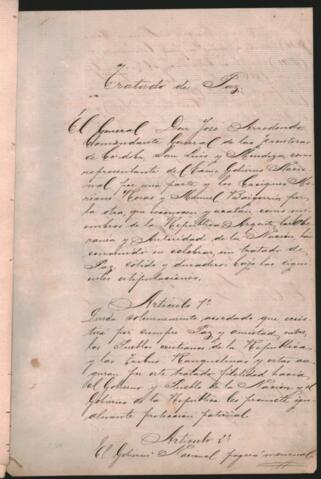 Tratado de Paz.
El General Don José Arredondo
Comandante General de las fronteras
de Cordoba, San Luis y Mendoza, como
representante de Exmo Gobierno Nacio
nal por una parte y los Caciques Ma
riano Rosas y Manuel Baigorria por
la otra, que reconocen y acatan como mi
embros de la República Argentina la Sobe
rania y Autoridad de la Nación, han
convenido en celebrar un tratado de
Paz sólido y duradero bajo las siguie
ntes estipulaciones.
Articulo 1º
Queda solemnemente acordado que exis
tirá por siempre Paz y amistad, entre
los Pueblos cristianos de la República
y las Tribus Ranquelinas y estas ase
guran por este tratado fidelidad hacia
el Gobierno y Pueblo de la Nación y el
Gobierno de la República les promete igu
almente protección paternal.
Articulo 2º
El Gobierno Nacional pagará mensual